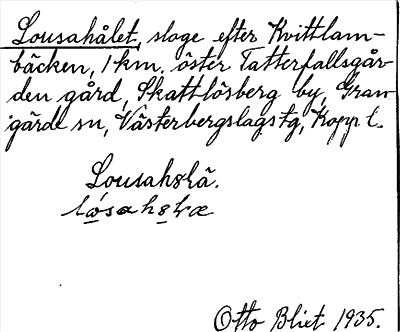 Lousahålet, sloge efter Kvittlam-
bäcken, 1 km. öster Tatterfallsgår-
den gård, Skattlösberg by, Gran-
gärde sn, Västerbergslags tg, Kopp l.
Lousah8lä.
Otto Blixt 1935.